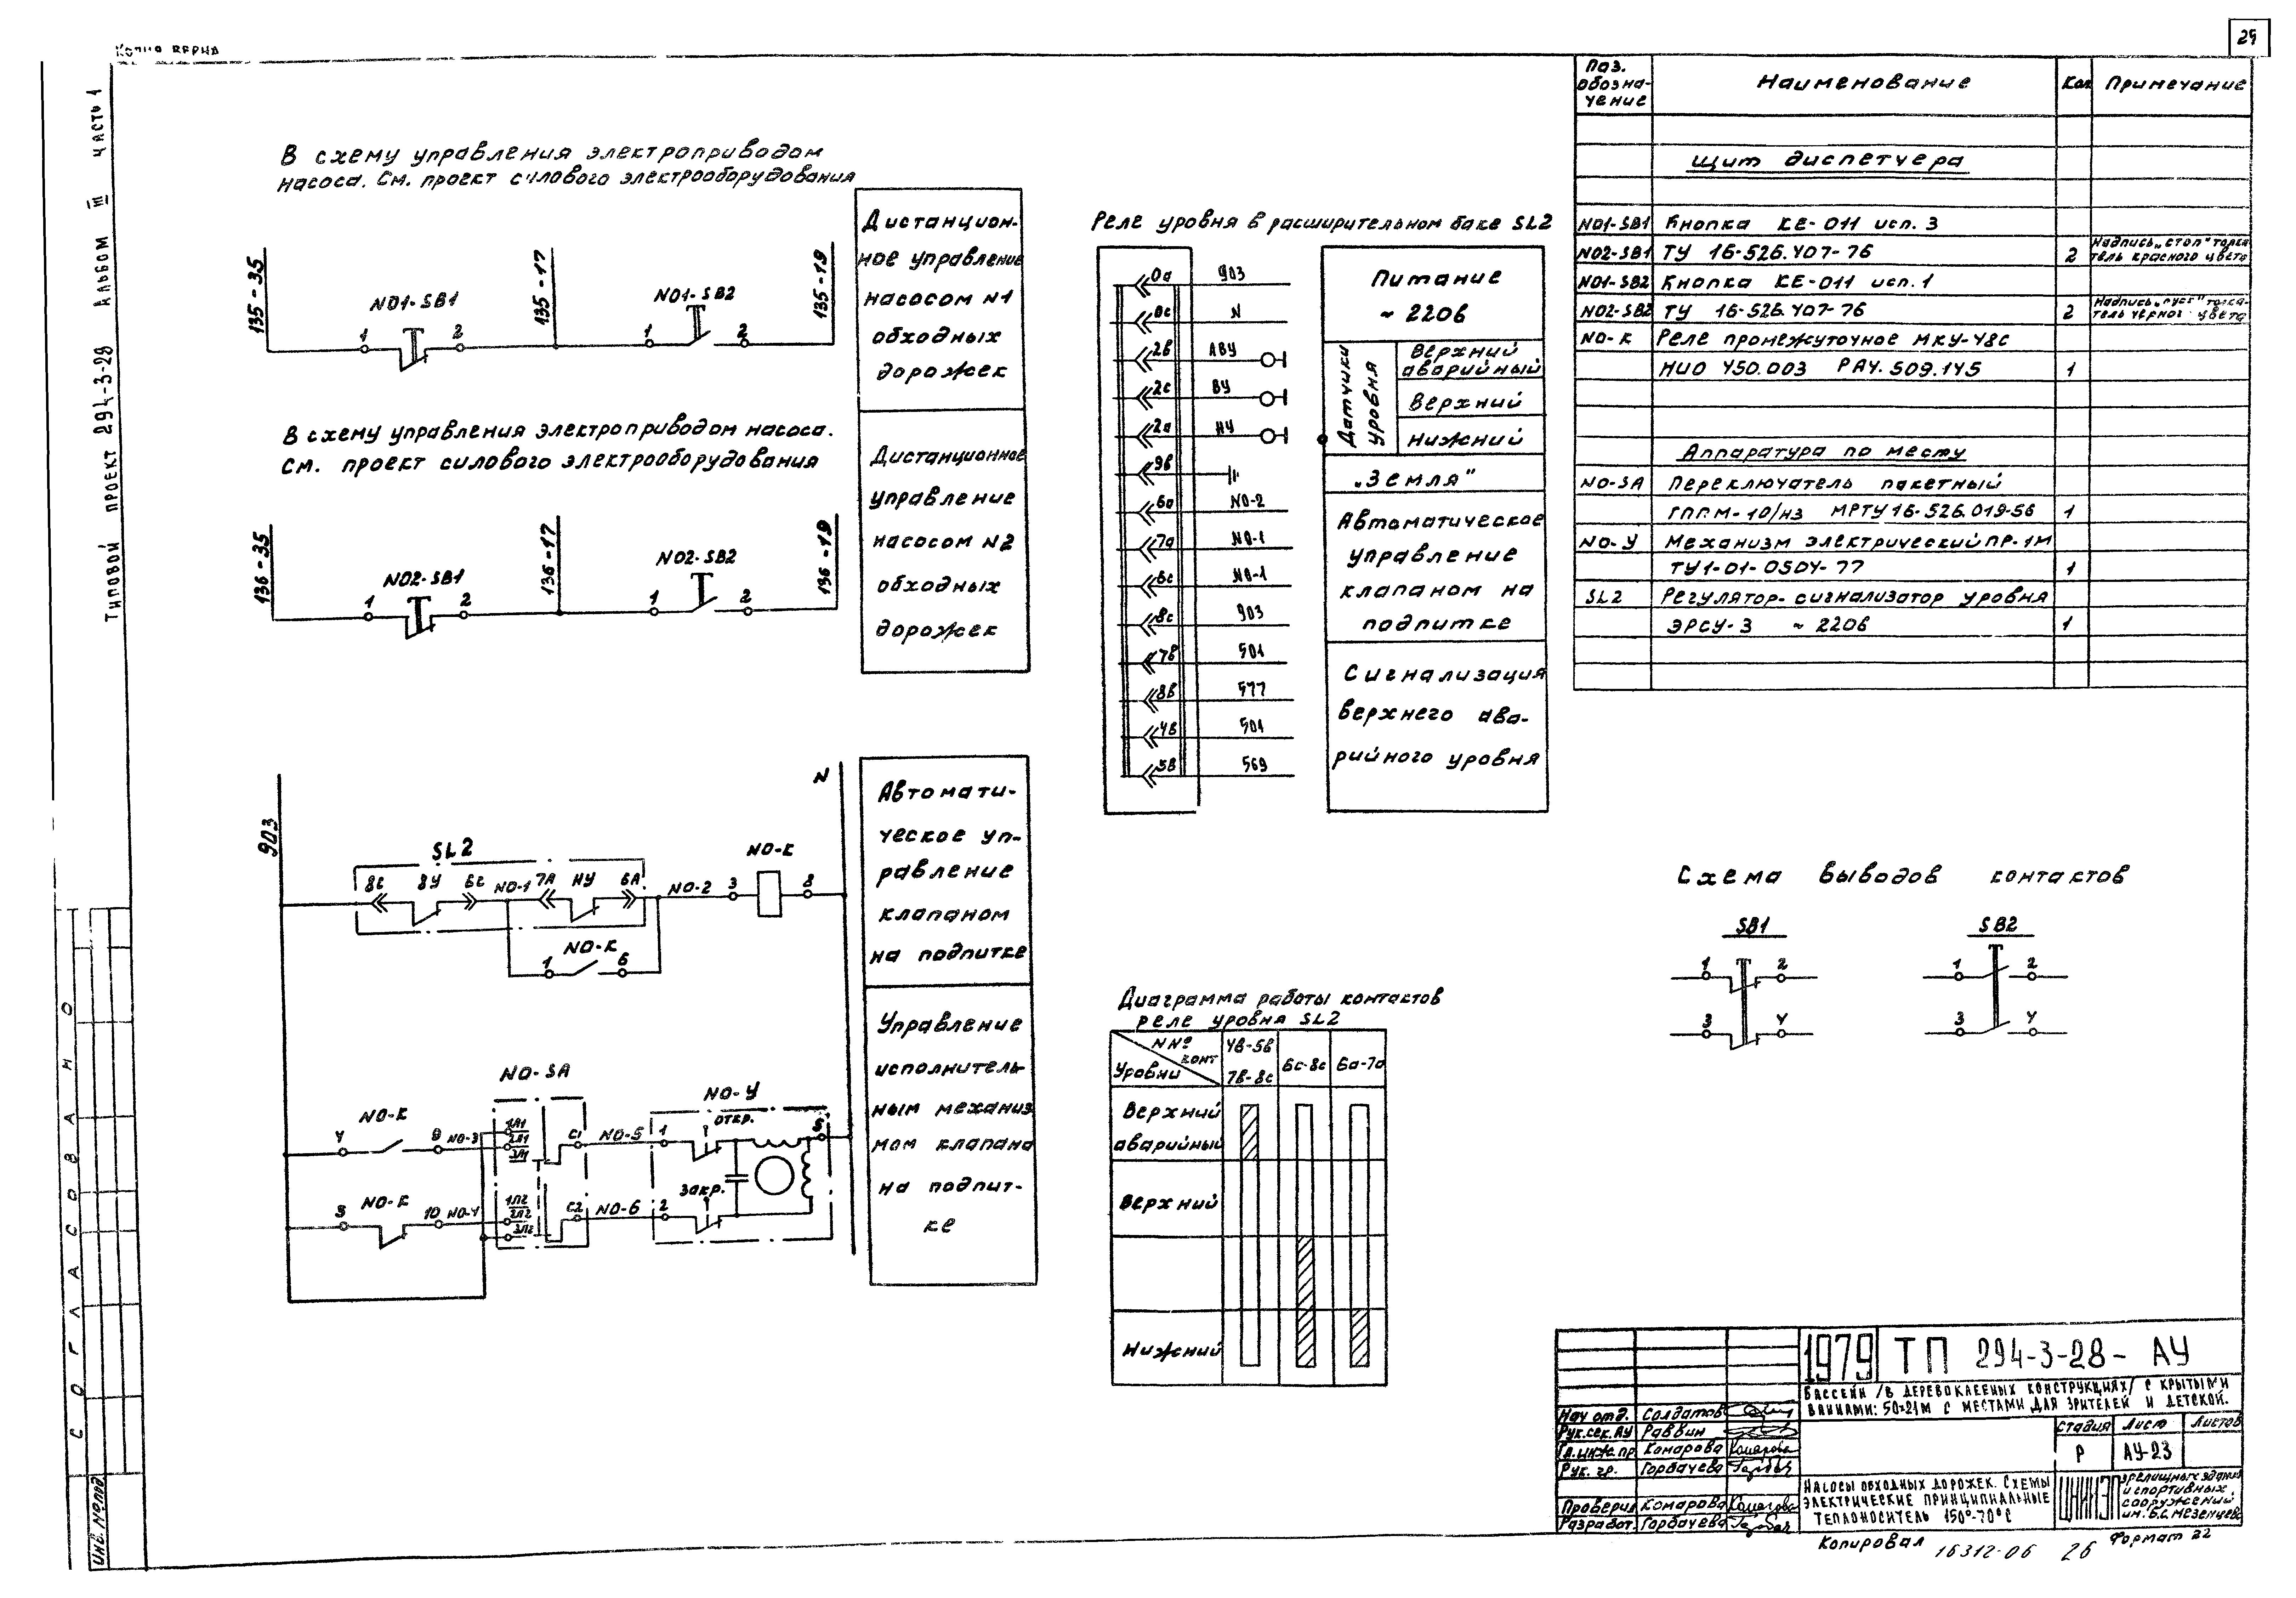 Копия верна
25
Типовой проект 294-3-28 Альбом III Часть 1
СОГЛАСОВАНО
Инв. № подл.
В схему управления электроприводом
насоса. См. проект силового электрооборудования
135-35
NO1-SB1
1 2
135-17
NO1-SB2
1 2
135-19
Дистанцион-
ное управление
насосом N1
обходных
дорожек
В схему управления электроприводом насоса.
См. проект силового электрооборудования
136-35
NO2-SB1
1 2
136-17
NO2-SB2
1 2
136-19
Дистанционное
управление
насосом N2
обходных
дорожек
903
N
SL2
8С ВУ 6С NO-1 7А НУ 6А NO-2 3 8
NO-К
NO-К
1 6
Автомати-
ческое уп-
равление
клапаном
на подпитке
NO-SA
NO-У
NO-К
4 9 NO-3
1Л1
2Л1
3Л1
С1 NO-5 1
откр.
5
NO-К
3 10 NO-4
1Л2
2Л2
3Л2
С2 NO-6 2
закр.
Управление
исполнитель-
ным механиз
мом клапана
на подпит-
ке
Реле уровня в расширительном баке SL2
0а 903
0с N
2в АВУ
2с ВУ
2а НУ
9в
6а NO-2
7а NO-1
6с NO-1
8с 903
7в 501
8в 577
4в 501
5в 569
Питание
~ 220в
Датчики
уровня
Верхний
аварийный
Верхний
Нижний
„Земля"
Автоматическое
управление
клапаном на
подпитке
Сигнализация
верхнего ава-
рийного уровня
Диаграмма работы контактов
реле уровня SL2
NNº
конт
Уровни
4в-5в
7в-8с
6с-8с
6а-7а
Верхний
аварийный
Верхний
Нижний
Поз.
обозна-
чение
Наименование
Кол
Примечание
Щит диспетчера
NO1-SB1 Кнопка КЕ-011 исп. 3
NO2-SB1 ТУ 16-526.407-76 2 Надпись „стоп" толка
тель красного цвета
NO1-SB2 Кнопка КЕ-011 исп. 1
NO2-SB2 ТУ 16-526.407-76 2 Надпись „пуск" толка-
тель черног цвета
NO-К Реле промежуточное МКУ-48С
НИО 450.003 РА4.509.145 1
Аппаратура по месту
NO-SA Переключатель пакетный
ГППМ-10/Н3 МРТУ 16-526.019-56 1
NO-У Механизм электрический ПР-1М
ТУ1-01-0504-77 1
SL2 Регулятор-сигнализатор уровня
ЭРСУ-3 ~ 220в 1
Схема выводов контактов
SB1
1 2
3 4
SB2
1 2
3 4
1979 ТП 294-3-28- АУ
Бассейн /в деревоклееных конструкциях/ с крытыми
ваннами: 50×21м с местами для зрителей и детской.
Нач отд. Солдатов
Рук.сек.АУ Раввин
Гл.инж.пр Комарова
Рук. гр. Горбачева
Проверил Комарова
Разработ. Горбачева
Стадия Лист Листов
Р АУ-23
Насосы обходных дорожек. Схемы
электрические принципиальные
Теплоноситель 150°-70°С
ЦНИИЭП зрелищных зданий
и спортивных
сооружений
им. Б.С. Мезенцева
Копировал 16312-06 26 Формат 22